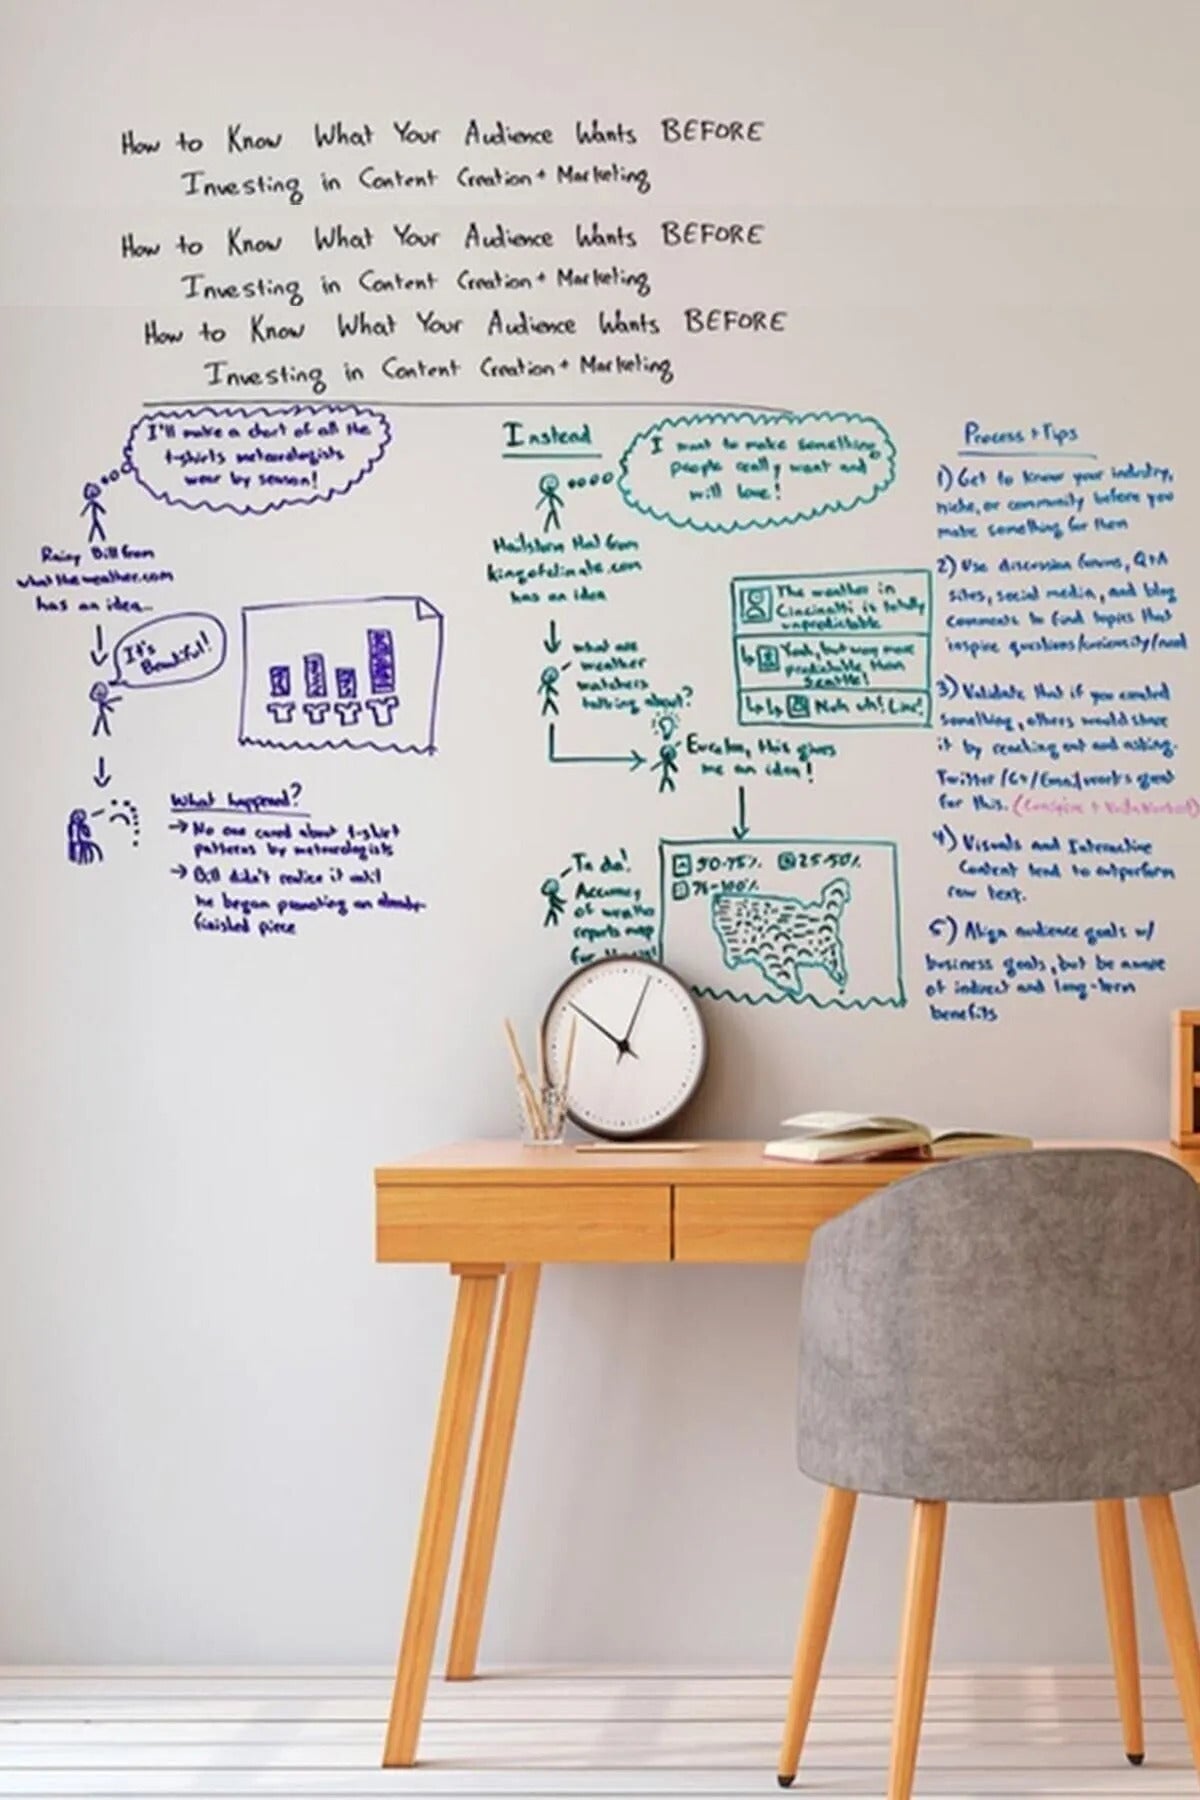 How to Know What Your Audience Wants BEFORE
Investing in Content Creation + Marketing
How to Know What Your Audience Wants BEFORE
Investing in Content Creation + Marketing
How to Know What Your Audience Wants BEFORE
Investing in Content Creation + Marketing
I'll make a chart of all the
t-shirts meteorologists
wear by season!
Rainy Bill from
whattheweather.com
has an idea...
It's
Beautiful!
What happened?
→ No one cared about t-shirt
patterns by meteorologists
→ Bill didn't realize it until
he began promoting an already-
finished piece
Instead
I want to make something
people really want and
will love!
Hailstorm Hal from
kingofclimate.com
has an idea
what are
weather
watchers
talking about?
The weather in
Cincinatti is totally
unpredictable
Yeah, but way more
predictable than
Seattle!
Nuh uh! Liar!
Eureka, this gives
me an idea!
Ta da!
Accuracy
of weather
reports map
for
50-75%
25-50%
75-100%
Process + Tips
1) Get to know your industry,
niche, or community before you
make something for them
2) Use discussion forums, Q+A
sites, social media, and blog
comments to find topics that
inspire questions/curiosity/need
3) Validate that if you created
something, others would share
it by reaching out and asking.
Twitter/G+/Email works great
for this.
4) Visuals and Interactive
Content tend to outperform
raw text.
5) Align audience goals w/
business goals, but be aware
of indirect and long-term
benefits